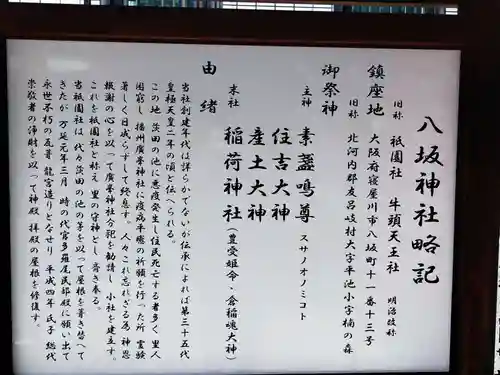 八坂神社略記
旧称 祇園社 牛頭天王社 明治改称
鎮座地 大阪府寝屋川市八坂町十一番十三号
旧称 北河内郡友呂岐村大字平池小字楠の森
御祭神
主神 素盞鳴尊 スサノオノミコト
住吉大神
産土大神
末社 稲荷神社 (豊受姫命・倉稲魂大神)
由緒
当社創建年代は詳らかでないが伝承によれば第三十五代
皇極天皇二年の頃と伝へられる。
この地 茨田の池に悪疫発生し住民死亡する者多く 里人
困窮し 播州廣峯神社に疫病平癒の祈願を行った所 霊験
著しく日成らずして終息す。人々これ忘れざる為 神恩
感謝の心を以って廣峯神社分祀を勧請し 小社を建立す。
これを祇園社と称え 里の守神とし 斎き奉る。
当祇園社は 代々茨田の池の茅を以って屋根を葺き替へて
きたが 万延元年三月 時の代官多羅尾民部殿に願い出て
永世不朽の瓦葺 龍宮造りとなせり 平成四年 氏子 総代
崇敬者の浄財を以って神殿 拝殿の屋根を修復す。